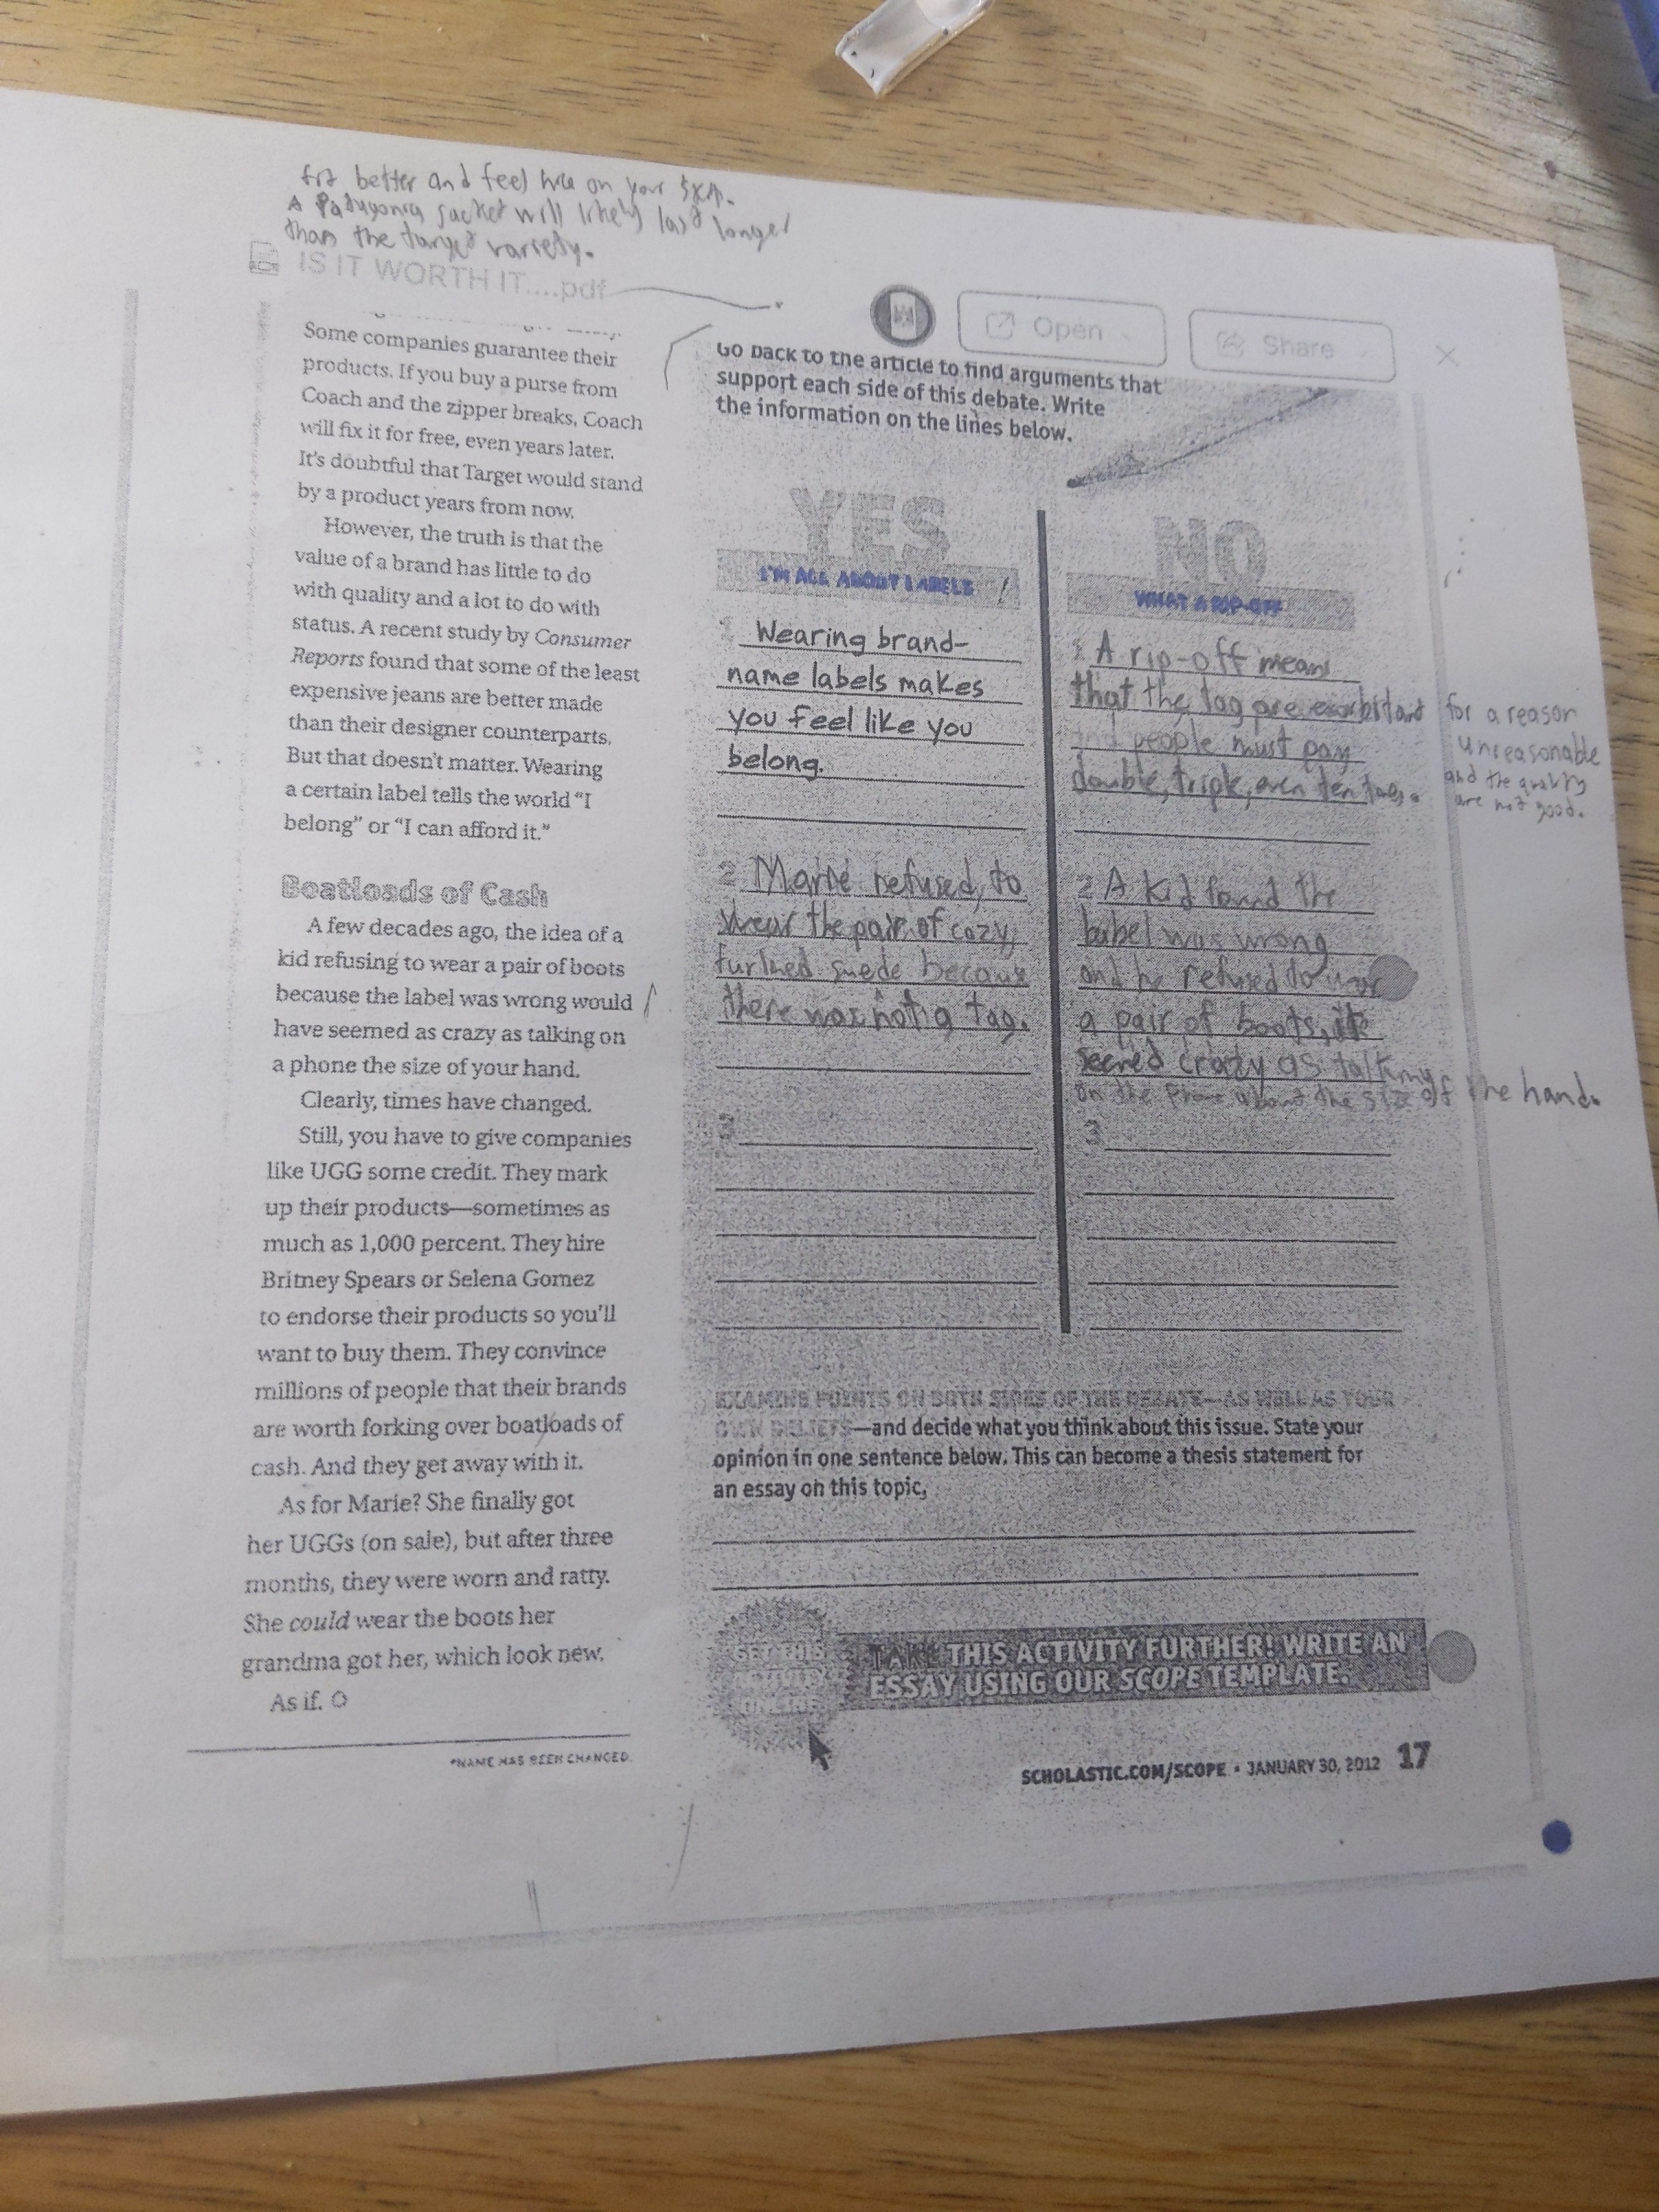 fit better and feel nice on your skin.
A Patagonia jacket will likely last longer
than the target variety.
IS IT WORTH IT....pdf
Open
Share
Some companies guarantee their
products. If you buy a purse from
Coach and the zipper breaks, Coach
will fix it for free, even years later.
It's doubtful that Target would stand
by a product years from now.
However, the truth is that the
value of a brand has little to do
with quality and a lot to do with
status. A recent study by Consumer
Reports found that some of the least
expensive jeans are better made
than their designer counterparts.
But that doesn't matter. Wearing
a certain label tells the world "I
belong" or "I can afford it."
Boatloads of Cash
A few decades ago, the idea of a
kid refusing to wear a pair of boots
because the label was wrong would
have seemed as crazy as talking on
a phone the size of your hand.
Clearly, times have changed.
Still, you have to give companies
like UGG some credit. They mark
up their products—sometimes as
much as 1,000 percent. They hire
Britney Spears or Selena Gomez
to endorse their products so you'll
want to buy them. They convince
millions of people that their brands
are worth forking over boatloads of
cash. And they get away with it.
As for Marie? She finally got
her UGGs (on sale), but after three
months, they were worn and ratty.
She could wear the boots her
grandma got her, which look new.
As if.
*NAME HAS BEEN CHANGED.
Go back to the article to find arguments that
support each side of this debate. Write
the information on the lines below.
YES
I'M ALL ABOUT LABELS
1 Wearing brand-
name labels makes
you feel like you
belong.
2 Marie refused to
wear the pair of cozy,
furlined suede because
there was not a tag.
3
NO
WHAT A RIP-OFF
1 A rip-off means
that the tag are exorbitant for a reason
and people must pay unreasonable
double, triple, even ten and the quality
are not good.
2 A kid found the
label was wrong
and he refused to wear
a pair of boots, it
seemed crazy as talking
on the phone about the size of the hand.
3
EXAMINE POINTS ON BOTH SIDES OF THE DEBATE—AS WELL AS YOUR
OWN BELIEFS—and decide what you think about this issue. State your
opinion in one sentence below. This can become a thesis statement for
an essay on this topic.
GET THIS
ACTIVITY
ONLINE
TAKE THIS ACTIVITY FURTHER! WRITE AN
ESSAY USING OUR SCOPE TEMPLATE.
SCHOLASTIC.COM/SCOPE • JANUARY 30, 2012 17